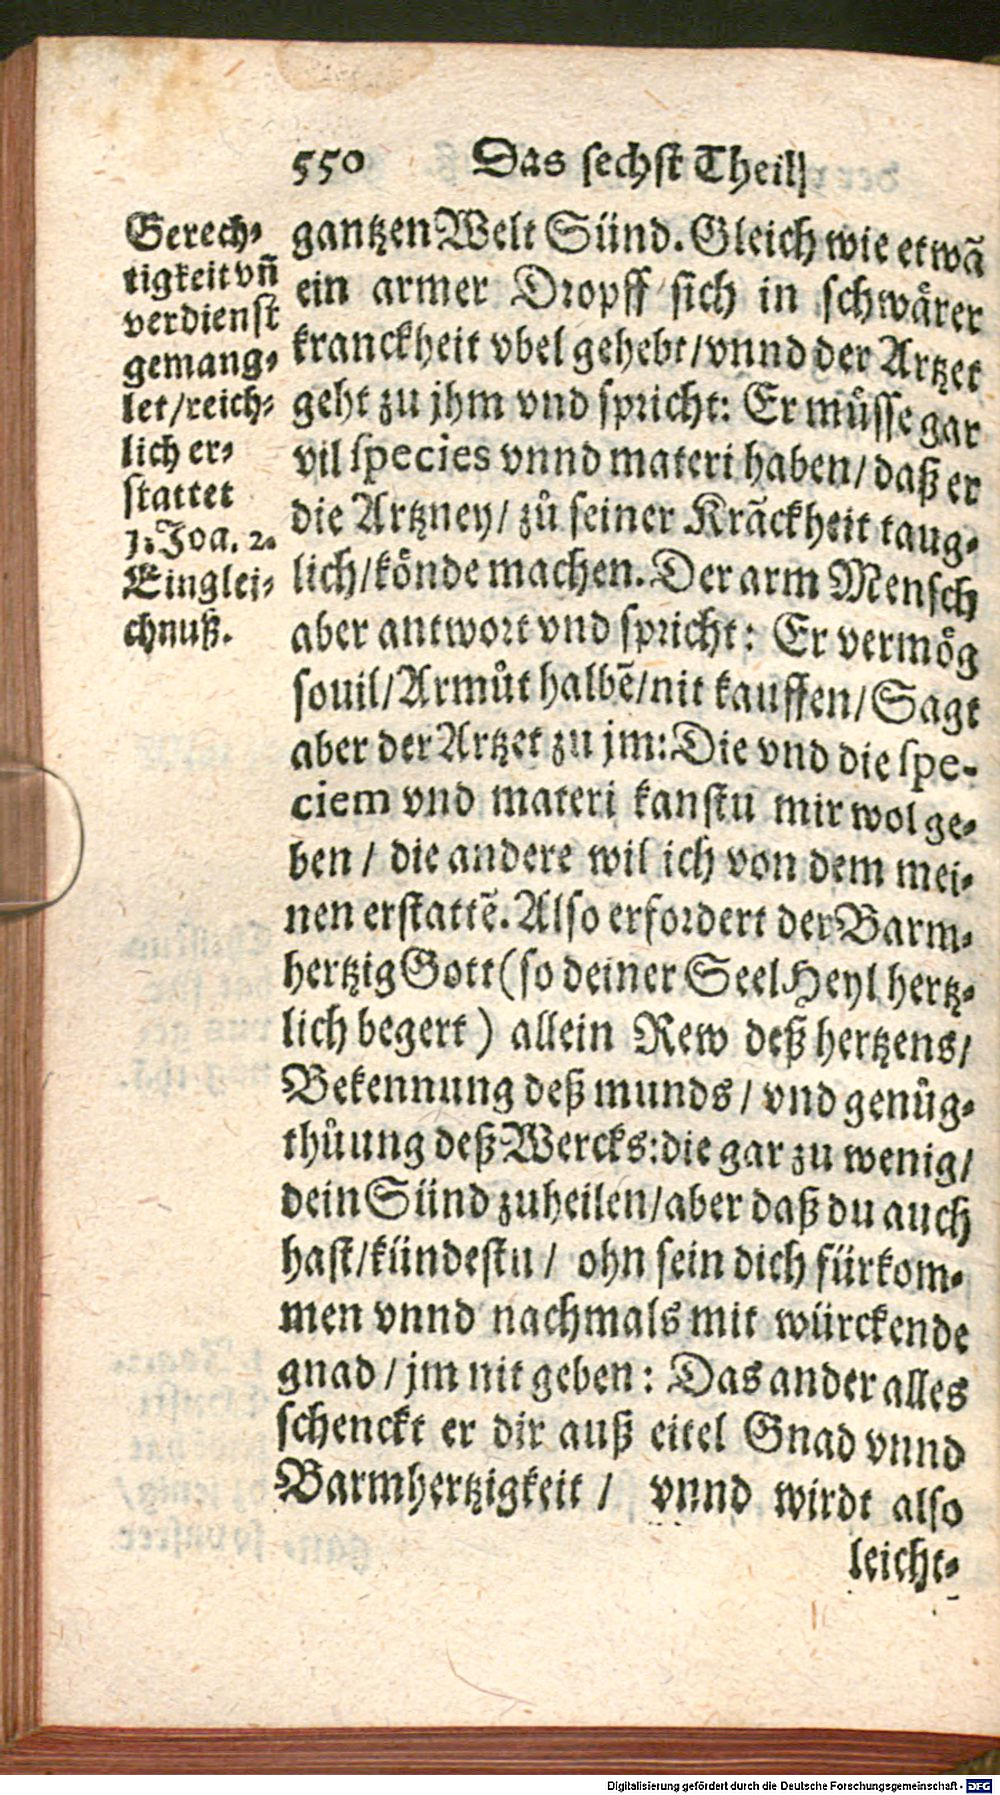 550 Das sechst Theil/
Gerech-
tigkeit vñ
verdienst
gemang-
let/reich-
lich er-
stattet
1. Joa. 2.
Ein glei-
chnuß.
gantzen Welt Sünd. Gleich wie etwã
ein armer Dropff sich in schwårer
kranckheit vbel gehebt/vnnd der Artzet
geht zu jhm vnd spricht: Er můsse gar
vil species vnnd materi haben/daß er
die Artzney/ zů seiner Krãckheit taug-
lich/könde machen. Der arm Mensch
aber antwort vnd spricht: Er vermög
souil/Armůt halbẽ/nit kauffen/Sagt
aber der Artzet zu jm: Die vnd die spe-
ciem vnd materi kanstu mir wol ge-
ben / die andere wil ich von dem mei-
nen erstattẽ. Also erfordert der Barm-
hertzig Gott (so deiner Seel Heyl hertz-
lich begert) allein Rew deß hertzens/
Bekennung deß munds/ vnd genůg-
thůung deß Wercks: die gar zu wenig/
dein Sünd zuheilen/aber daß du auch
hast/kündestu/ ohn sein dich fürkom-
men vnnd nachmals mit würckende
gnad/ jm nit geben: Das ander alles
schenckt er dir auß eitel Gnad vnnd
Barmhertzigkeit / vnnd wirdt also
leicht-
Digitalisierung gefördert durch die Deutsche Forschungsgemeinschaft - DFG